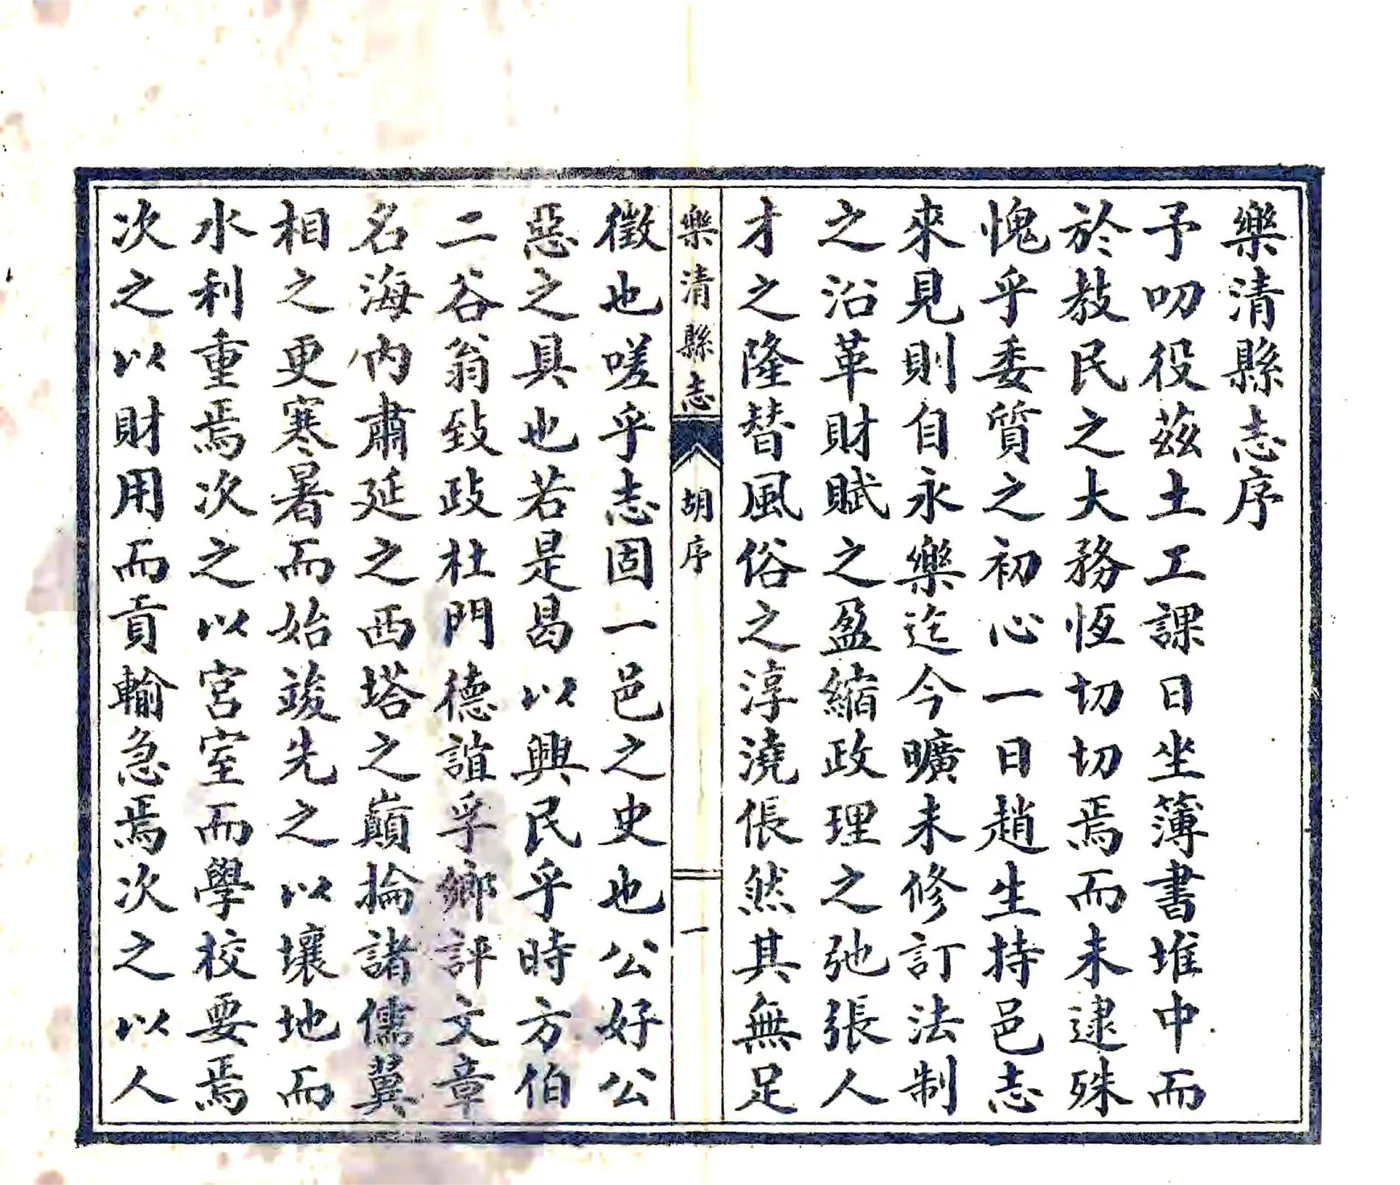 樂清縣志序
予叨役茲土工課日坐簿書堆中而
於教民之大務恆切切焉而未逮殊
愧乎委質之初心一日趙生持邑志
來見則自永樂迄今曠未修訂法制
之沿革財賦之盈縮政理之弛張人
才之隆替風俗之淳澆倀然其無足
樂清縣志
胡序
一
徵也嗟乎志固一邑之史也公好公
惡之具也若是曷以興民乎時方伯
二谷翁致政杜門德誼孚鄉評文章
名海內肅延之西塔之巔掄諸儒冀
相之更寒暑而始竣先之以壤地而
水利重焉次之以宮室而學校要焉
次之以財用而貢輸急焉次之以人